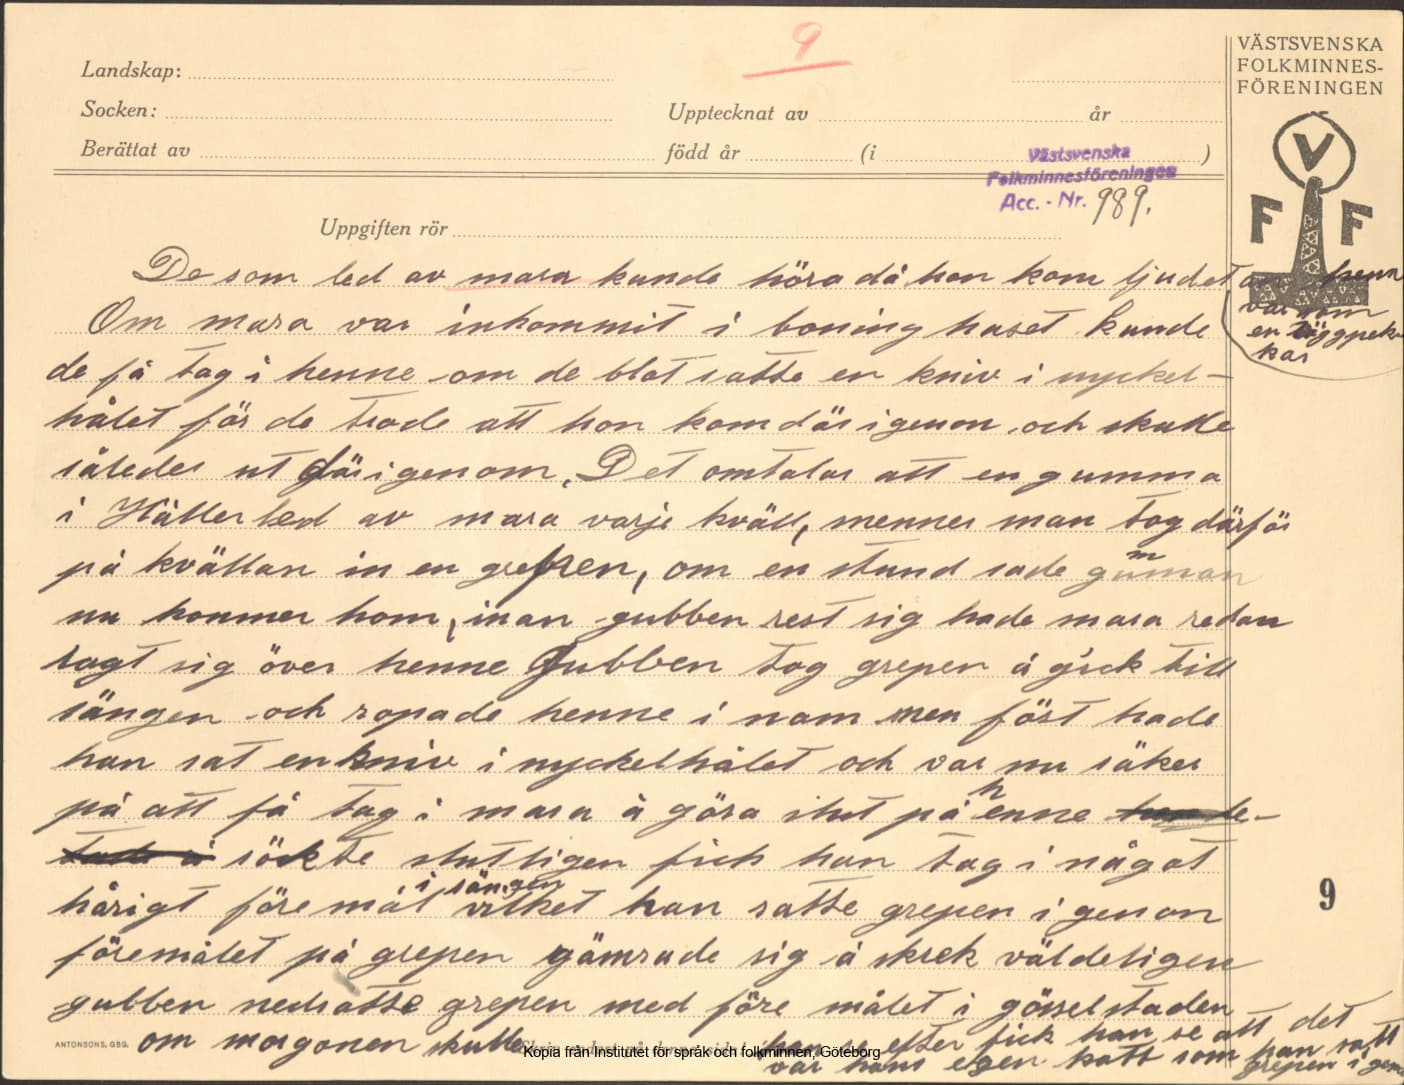 9
VÄSTSVENSKA
FOLKMINNES-
FÖRENINGEN
V
F F
Landskap:
Socken:
Upptecknat av år
Berättat av född år (i )
Västsvenska
Folkminnesföreningen
Acc. - Nr. 989.
Uppgiften rör
De som led av mara kunde höra då hon kom ljudet av henn
var som
en väggpek
kar
Om mara var inkommit i boning huset kunde
de få tag i henne om de blot satte en kniv i nyckel-
hålet för de trode att hon kom där igenon och skulle
således ut därigenom, Det omtalas att en gumma
i Håller led av mara varje kväll, mennes man tog därför
på kvällan in en grepen, om en stund sade gumman
nu kommer hom, inan gubben rest sig hade mara redan
lagt sig över henne Gubben tog grepen å gick till
sängen och ropade henne i nam men föst hade
han sat en kniv i nyckelhålet och var nu säker
på att få tag i mara å göra slut på henne
sökte slutligen fich han tag i något
hårigt föremål i sängen vilket han satte grepen igenon
föremålet på grepen gämrade sig å skrek väldeligen
gubben nedsatte grepen med före målet i gösselstaden
om morgonen skulle han se efter fick han se att det
var hans egen katt som han satt
grepen i genom
9
ANTONSONS, GBG.
Kopia från Institutet för språk och folkminnen, Göteborg